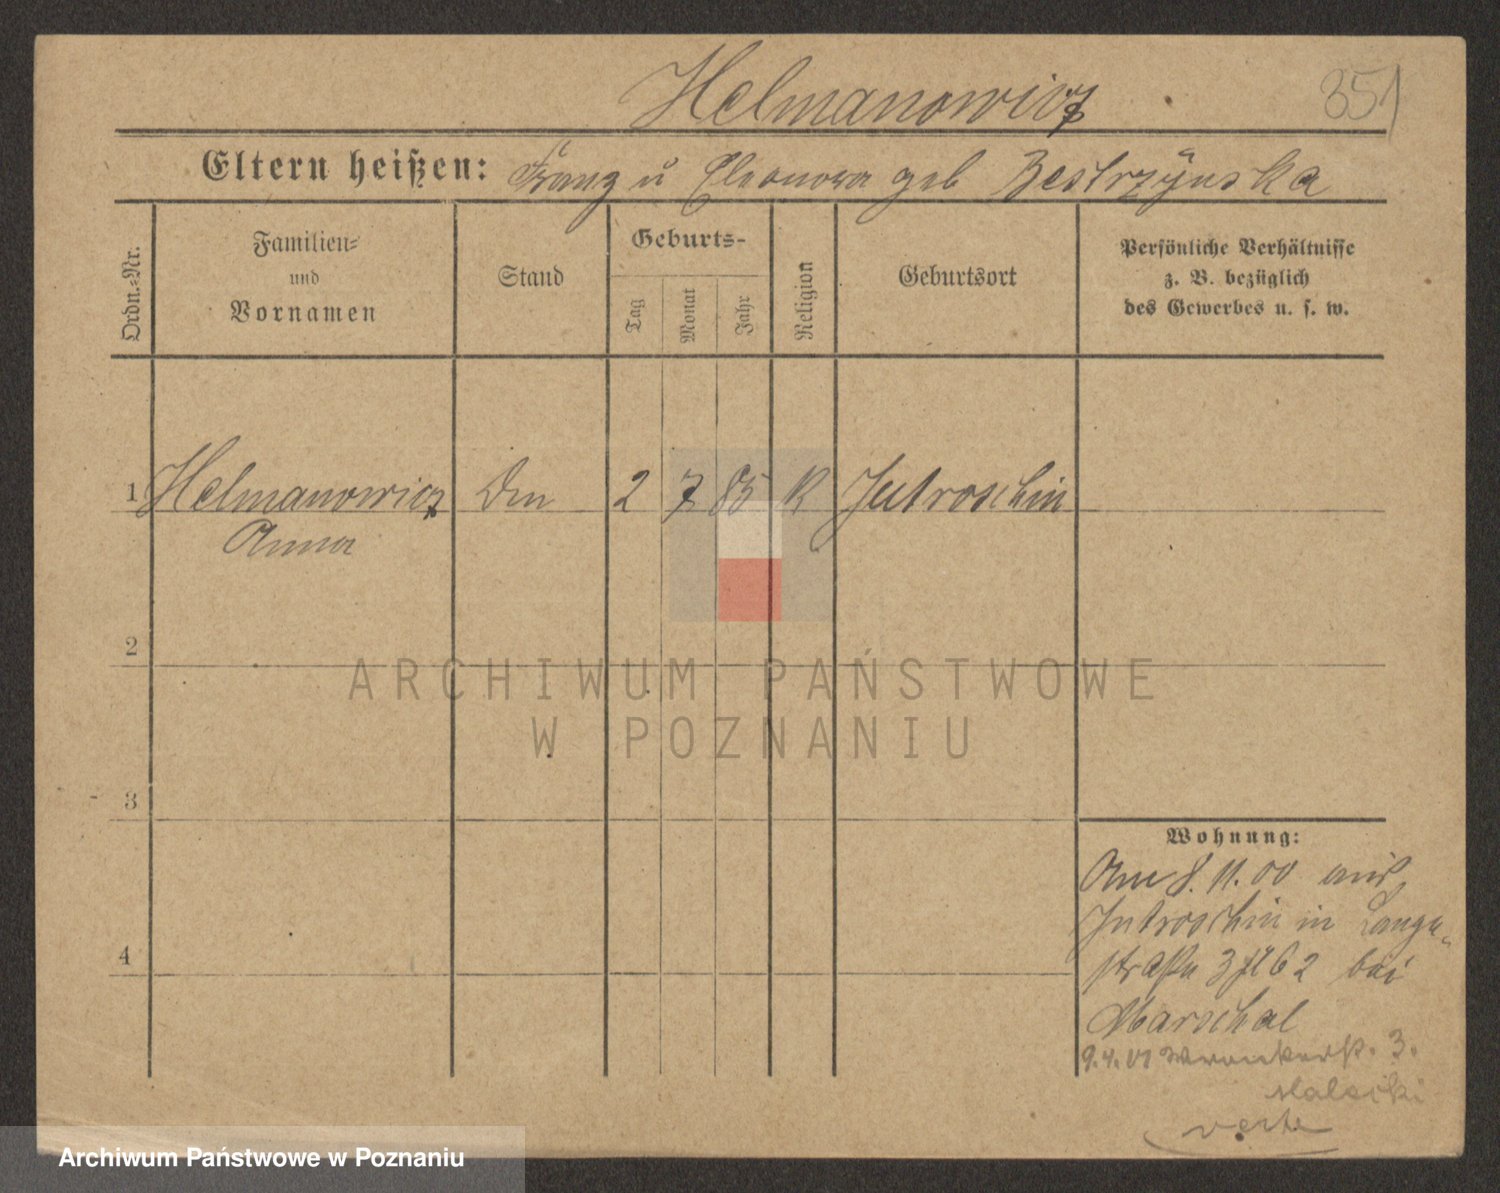 Helmanowicz
351
Eltern heißen: Franz u Eleonora geb Bestrzynska
Ordn.-Nr.
Familien-
und
Vornamen
Stand
Geburts-
Tag
Monat
Jahr
Religion
Geburtsort
Persönliche Verhältnisse
z. B. bezüglich
des Gewerbes u. s. w.
1 Helmanowicz Dm 2 7 85 K Jutroschin
Anna
2
ARCHIWUM PAŃSTWOWE
W POZNANIU
3
Wohnung:
Am 8. 11. 00 aus
Jutroschin in Lange-
4
straße 3 62 bei
Marschal
9.4.01 Wronkerstr. 3.
Malecki
verte
Archiwum Państwowe w Poznaniu